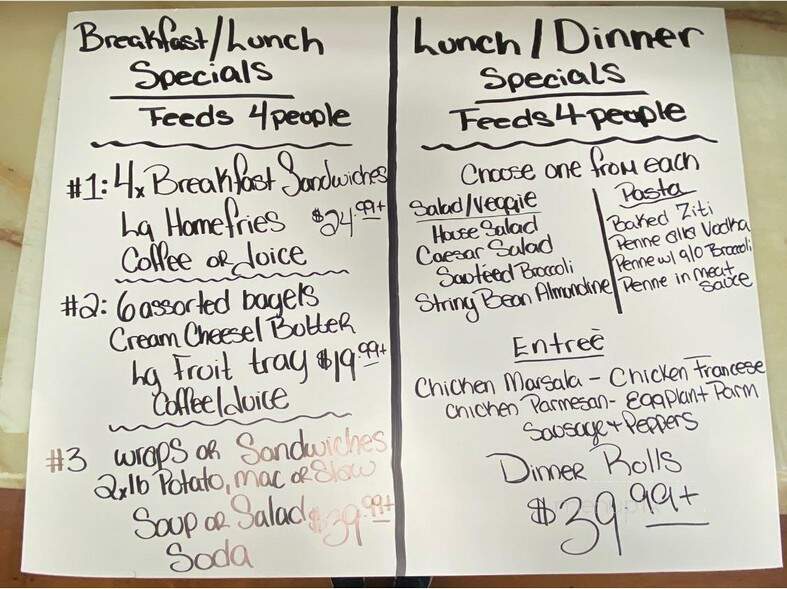 Breakfast/Lunch
Specials
Feeds 4 people
#1: 4x Breakfast Sandwiches
Lg Homefries $24.99+
Coffee or Juice
#2: 6 assorted bagels
Cream Cheese/Butter
Lg Fruit tray $19.99+
Coffee/Juice
#3 wraps or Sandwiches
2x1b Potato, mac or Slow
Soup or Salad $39.99+
Soda
Lunch/Dinner
Specials
Feeds 4 people
Choose one from each
Salad/Veggie
House Salad
Caesar Salad
Sauteed Broccoli
String Bean Almondine
Pasta
Baked Ziti
Penne alla Vodka
Penne w/ g/o Broccoli
Penne in meat
sauce
Entreè
Chicken Marsala - Chicken Francese
Chicken Parmesan - Eggplant Parm
Sausage + Peppers
Dinner Rolls
$39.99+